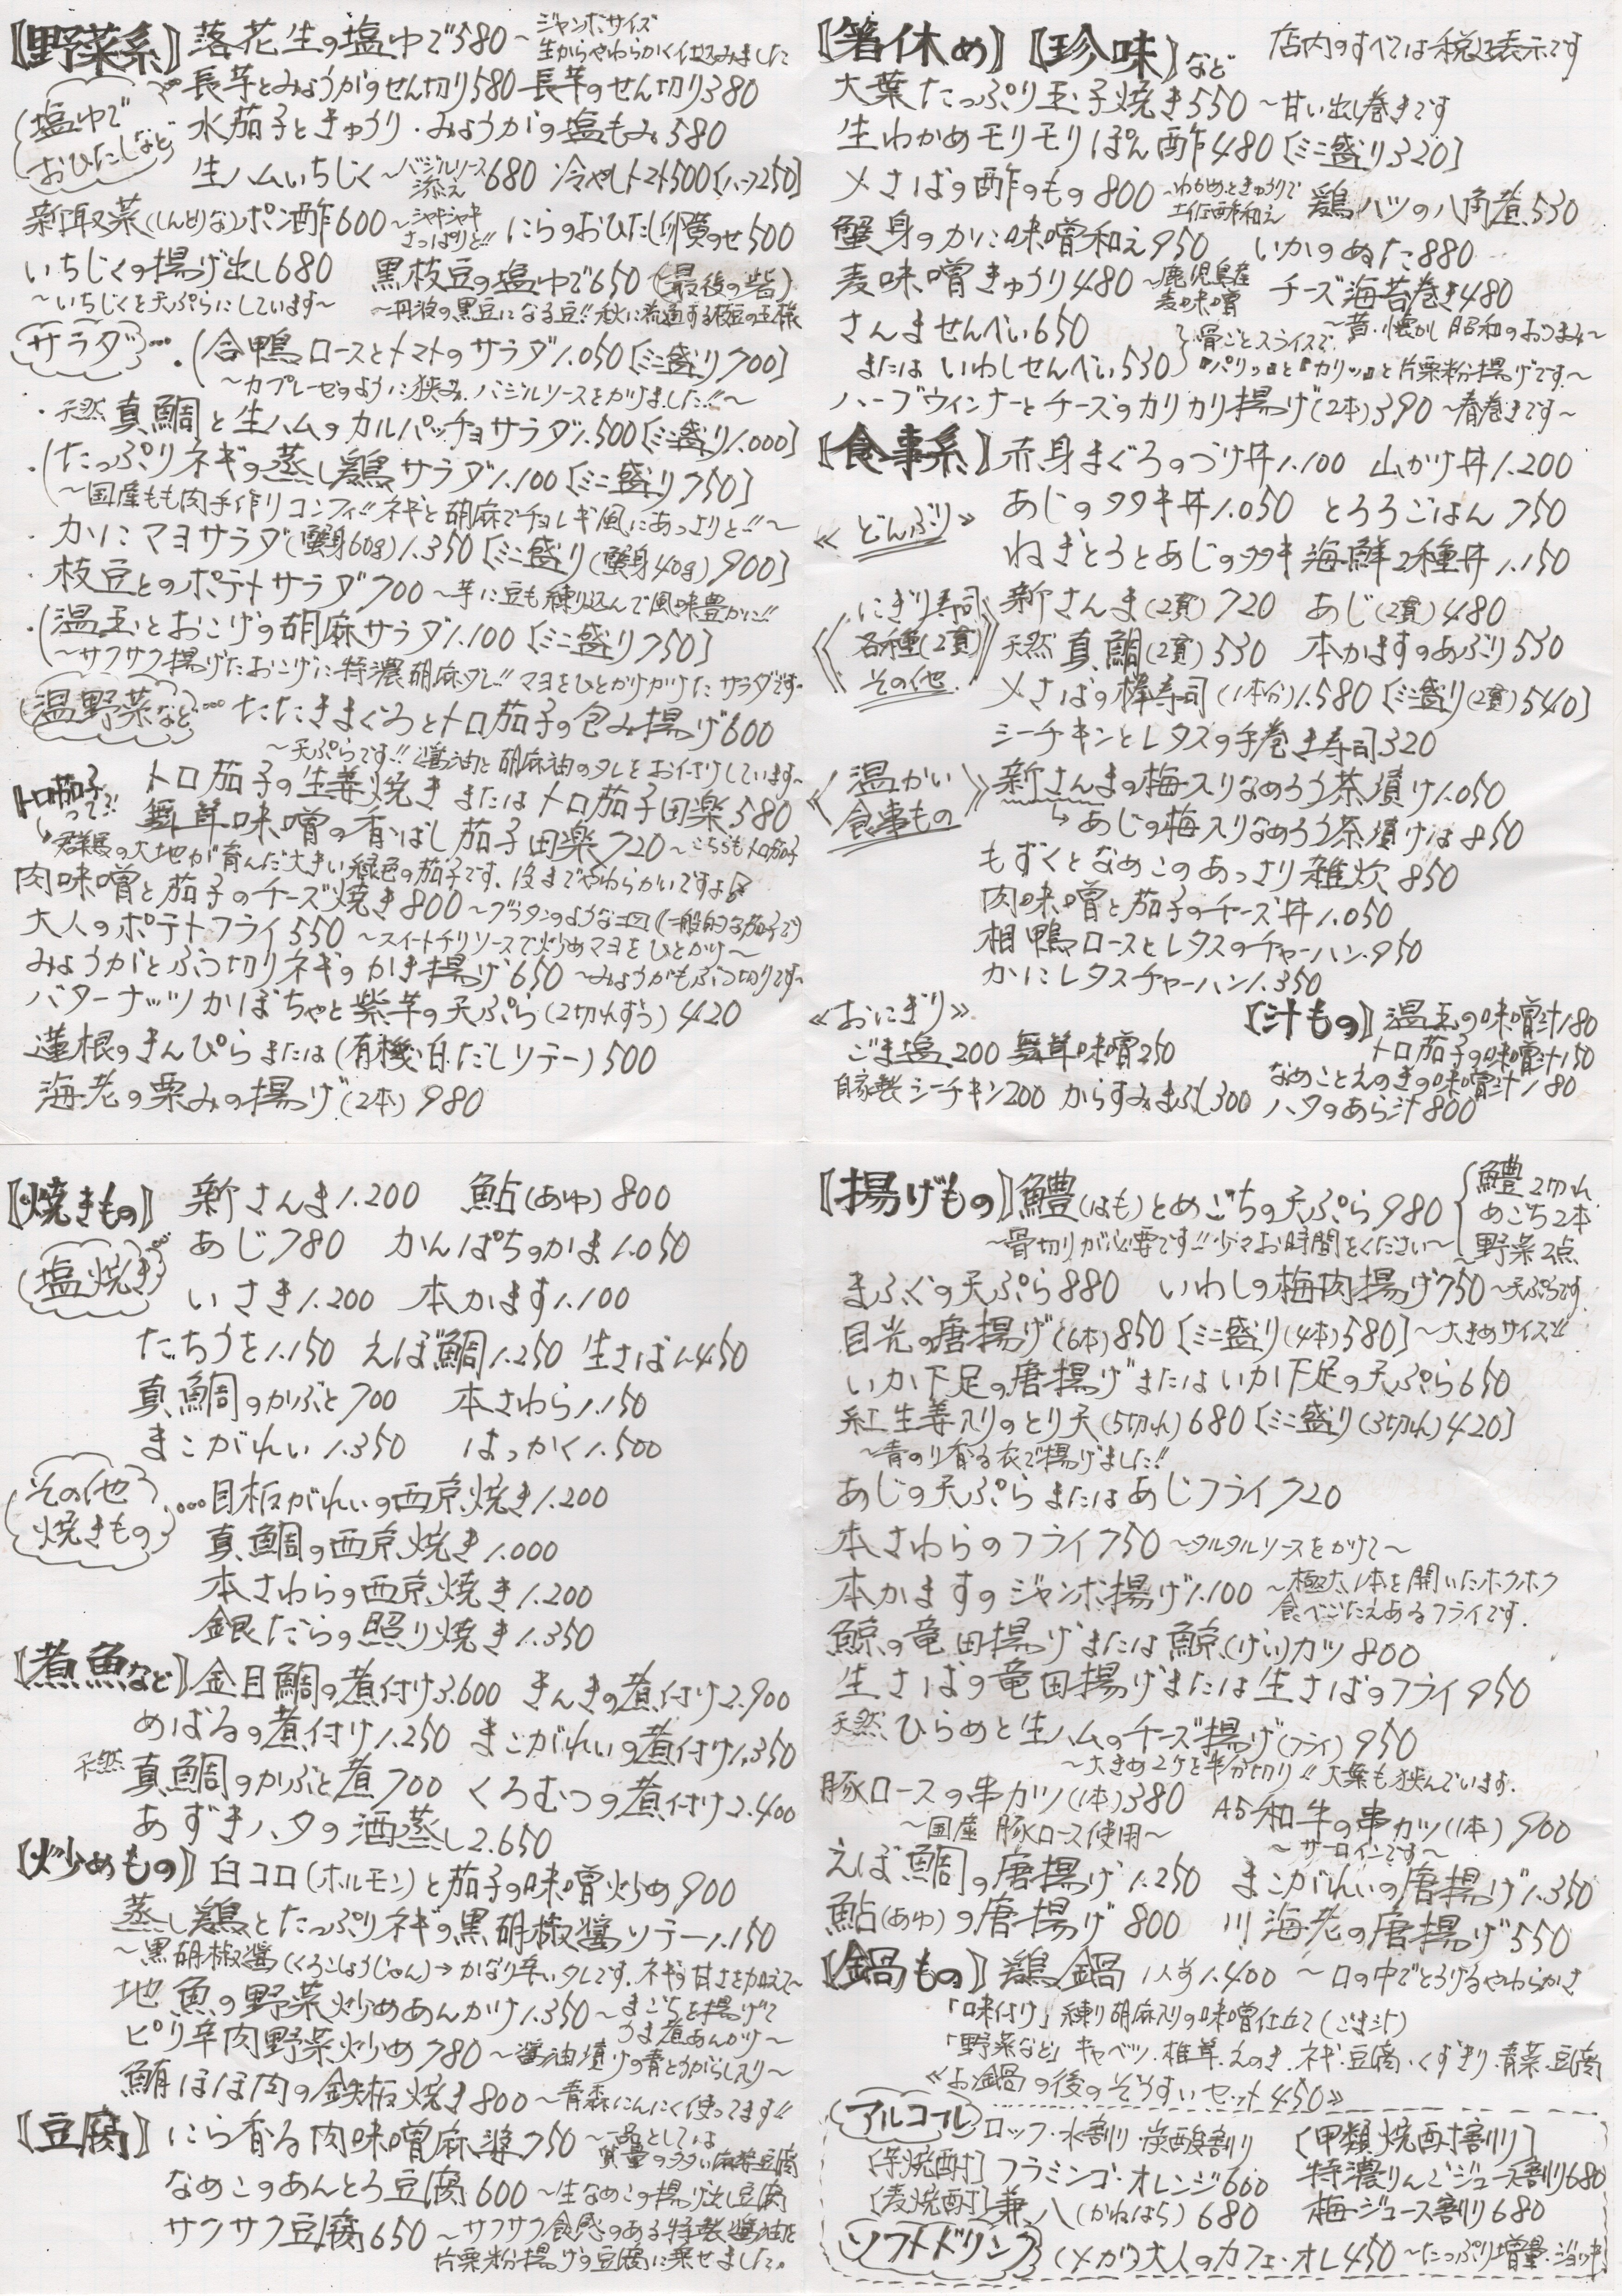 【野菜系】落花生の塩ゆで580～ジャンボサイズ
生からやわらかく仕込みました
(塩ゆで おひたしなど)
長芋とみょうがのせん切り580 長芋のせん切り380
水茄子ときゅうり・みょうがの塩もみ580
生ハムいちじく～バジルソース添え680 冷やしトマト500[ハーフ250]
新取菜(しんとりな)ポン酢600～シャキシャキさっぱりと!! にらのおひたし卵黄のせ500
いちじくの揚げ出し680 黒枝豆の塩ゆで650(最後の砦)
～いちじくを天ぷらにしています～ ～丹波の黒豆になる豆!!秋に流通する枝豆の王様
サラダ…・(合鴨ロースとトマトのサラダ1.050[ミニ盛り700]
～カプレーゼのように挟み、バジルソースをかけました!!～
・天然真鯛と生ハムのカルパッチョサラダ1.500[ミニ盛り1.000]
・(たっぷりネギの蒸し鶏サラダ1.100[ミニ盛り750]
～国産もも肉手作りコンフィ!!ネギと胡麻でチョレギ風にあっさりと!!～
・かにマヨサラダ(蟹身60g)1.350[ミニ盛り(蟹身40g)900]
・枝豆とのポテトサラダ700～芋に豆も練り込んで風味豊かに!!
・(温玉とおこげの胡麻サラダ1.100[ミニ盛り750]
～サクサク揚げたおこげに特濃胡麻ダレ!!マヨをひとかけかけたサラダです～
温野菜など…たたきまぐろとトロ茄子の包み揚げ600
～天ぷらです!!醤油と胡麻油のタレをお付けしています～
トロ茄子って?! トロ茄子の生姜焼きまたはトロ茄子田楽580
舞茸味噌の香ばし茄子田楽720～こちらもトロ茄子
群馬の大地が育んだ大きい緑色の茄子です。皮までやわらかいですよ
肉味噌と茄子のチーズ焼き800～グラタンのような皿(一般的な茄子で)
大人のポテトフライ550～スイートチリソースで炒めマヨをひとかけ～
みょうがとぶつ切りネギのかき揚げ650～みょうがもぶつ切りです～
バターナッツかぼちゃと紫芋の天ぷら(2切れずつ)420
蓮根のきんぴらまたは(有機白だしソテー)500
海老の栗みの揚げ(2本)980
【箸休め】【珍味】など 店内のすべては税込表示です
大葉たっぷり玉子焼き550～甘い出し巻きです
生わかめモリモリぽん酢480[ミニ盛り320]
〆さばの酢のもの800～わかめときゅうりで土佐酢和え 鶏ハツの八角煮530
蟹身のかに味噌和え950 いかのぬた880
麦味噌きゅうり480～鹿児島産麦味噌 チーズ海苔巻き480
～昔・懐かし昭和のおつまみ～
さんませんべい650
またはいわしせんべい530
骨ごとスライスで、『パリッ』と『カリッ』と片栗粉揚げです～
ハーブウィンナーとチーズのカリカリ揚げ(2本)390～春巻きです～
【食事系】赤身まぐろのづけ丼1.100 山かけ丼1.200
≪どんぶり≫
あじのタタキ丼1.050 とろろごはん750
ねぎとろとあじのタタキ海鮮2種丼1.150
≪にぎり寿司 各種(2貫) その他≫
新さんま(2貫)720 あじ(2貫)480
天然真鯛(2貫)530 本かますのあぶり530
〆さばの棒寿司(1本分)1.580[ミニ盛り(2貫)540]
シーチキンとレタスの手巻き寿司320
≪温かい 食事もの≫
新さんまの梅入りなめろう茶漬け1.050
→あじの梅入りなめろう茶漬けは850
もずくとなめこのあっさり雑炊850
肉味噌と茄子のチーズ丼1.050
相鴨ロースとレタスのチャーハン950
かにレタスチャーハン1.350
≪おにぎり≫
ごま塩200 舞茸味噌250
自家製シーチキン200 からすみまぶし300
【汁もの】温玉の味噌汁180
トロ茄子の味噌汁150
なめことえのきの味噌汁180
ハタのあら汁800
【焼きもの】新さんま1.200 鮎(あゆ)800
塩焼き
あじ780 かんぱちのかま1.050
いさき1.200 本かます1.100
たちうを1.150 えぼ鯛1.250 生さば1.450
真鯛のかぶと700 本さわら1.150
まこがれい1.350 はっかく1.500
その他焼きもの…目板がれいの西京焼き1.200
真鯛の西京焼き1.000
本さわらの西京焼き1.200
銀だらの照り焼き1.350
【煮魚など】金目鯛の煮付け3.600 きんきの煮付け2.900
めばるの煮付け1.250 まこがれいの煮付け1.350
天然真鯛のかぶと煮700 くろむつの煮付け2.400
あずきハタの酒蒸し2.650
【炒めもの】白コロ(ホルモン)と茄子の味噌炒め900
蒸し鶏とたっぷりネギの黒胡椒醤ソテー1.150
～黒胡椒醤(くろこしょうじゃん)→かなり辛いタレです。ネギの甘さを加えて～
地魚の野菜炒めあんかけ1.350～まごちを揚げてうま煮あんかけ～
ピリ辛肉野菜炒め780～醤油漬けの青とうがらし入り～
鮪ほほ肉の鉄板焼き800～青森にんにく使ってます!!
【豆腐】にら香る肉味噌麻婆750～一品としては質量の多い麻婆豆腐
なめこのあんとろ豆腐600～生なめこの揚げ出し豆腐
サクサク豆腐650～サクサク食感のある特製醤油を片栗粉揚げの豆腐に乗せました。
【揚げもの】鱧(はも)とめごちの天ぷら980
鱧2切れ
めごち2本
野菜2点
～骨切りが必要です!!少々お時間をください～
まふぐの天ぷら880 いわしの梅肉揚げ750～天ぷらです
目光の唐揚げ(6本)850[ミニ盛り(4本)580]～大きめサイズ!!
いか下足の唐揚げまたはいか下足の天ぷら650
紅生姜入りのとり天(5切れ)680[ミニ盛り(3切れ)420]
～青のり香る衣で揚げました!!
あじの天ぷらまたはあじフライ720
本さわらのフライ750～タルタルソースをかけて～
本かますのジャンボ揚げ1.100～極太1本を開いたホクホク
食べごたえあるフライです。
鯨の竜田揚げまたは鯨(げい)カツ800
生さばの竜田揚げまたは生さばのフライ950
天然ひらめと生ハムのチーズ揚げ(フライ)950
～大きめ2ケを半分切り!!大葉も挟んでいます。
豚ロースの串カツ(1本)380 A5和牛の串カツ(1本)900
～国産豚ロース使用～ ～サーロインです～
えぼ鯛の唐揚げ1.250 まこがれいの唐揚げ1.350
鮎(あゆ)の唐揚げ800 川海老の唐揚げ550
【鍋もの】鶏鍋1人前1.400～口の中でとろけるやわらかさ
「味付け」練り胡麻入りの味噌仕立て(ごま汁)
「野菜など」キャベツ・椎茸・えのき・ネギ・豆腐・くずきり・青菜・豆腐
≪お鍋の後のぞうすいセット450≫
アルコール ロック・水割り・炭酸割り [甲類焼酎割り]
[芋焼酎]フラミンゴ・オレンジ600 特濃りんごジュース割り680
[麦焼酎]兼八(かねはち)680 梅ジュース割り680
ソフトドリンク (メガ)大人のカフェ・オレ450～たっぷり増量・ジョッキ